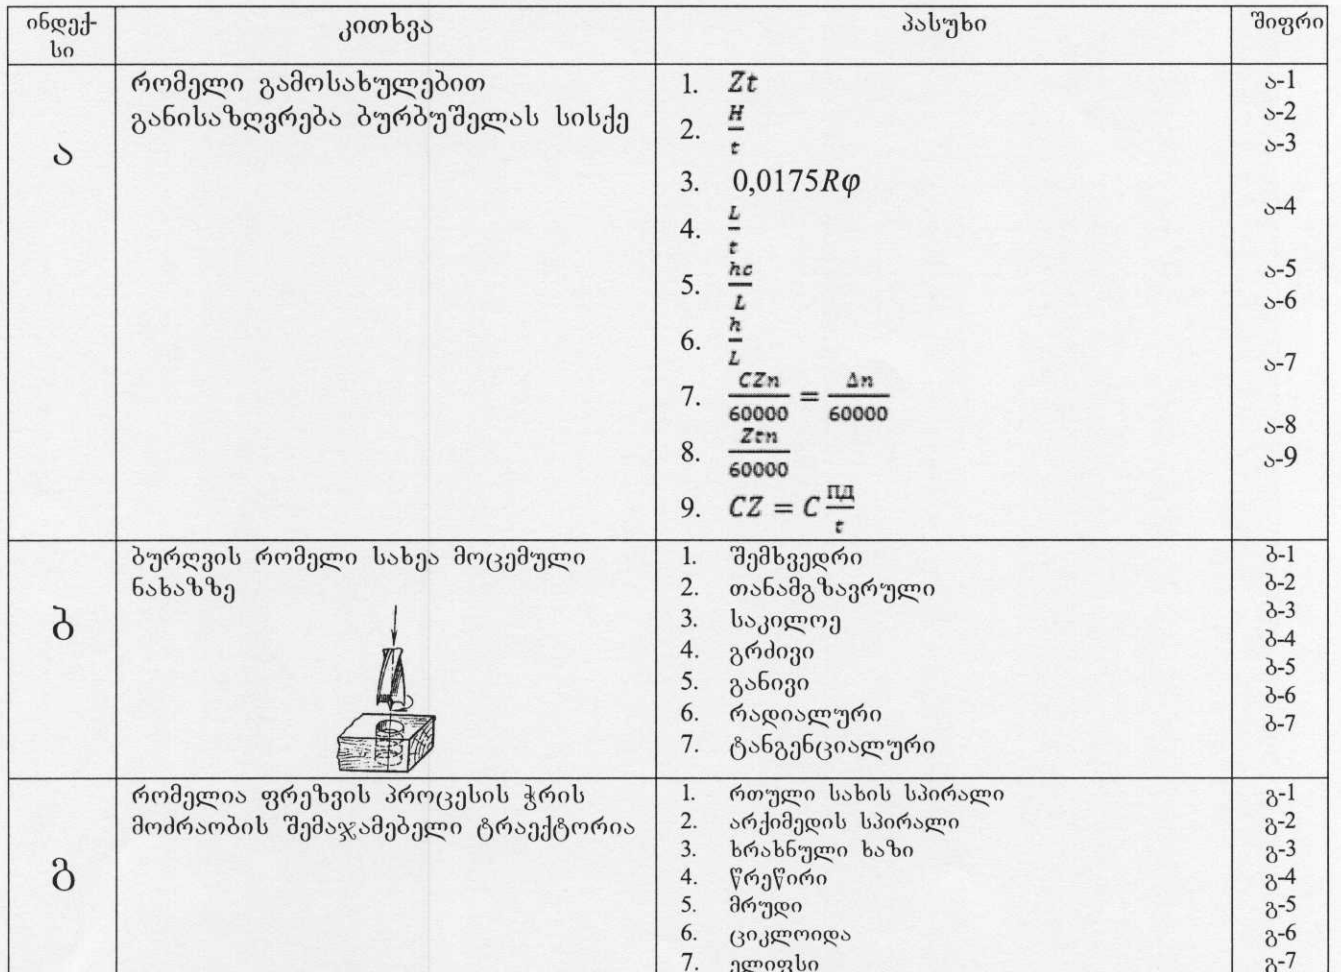 ინდექ-
სი
კითხვა
პასუხი
შიფრი
ა
რომელი გამოსახულებით
განისაზღვრება ბურბუშელას სისქე
1. Zt
2. H/t
3. 0,0175Rφ
4. L/t
5. hc/L
6. h/L
7. CZn/60000 = Δn/60000
8. Ztn/60000
9. CZ = C ПД/t
ა-1
ა-2
ა-3
ა-4
ა-5
ა-6
ა-7
ა-8
ა-9
ბ
ბურღვის რომელი სახეა მოცემული
ნახაზზე
1. შემხვედრი
2. თანამგზავრული
3. საკილოე
4. გრძივი
5. განივი
6. რადიალური
7. ტანგენციალური
ბ-1
ბ-2
ბ-3
ბ-4
ბ-5
ბ-6
ბ-7
გ
რომელია ფრეზვის პროცესის ჭრის
მოძრაობის შემაჯამებელი ტრაექტორია
1. რთული სახის სპირალი
2. არქიმედის სპირალი
3. ხრახნული ხაზი
4. წრეწირი
5. მრუდი
6. ციკლოიდა
7. ელიფსი
გ-1
გ-2
გ-3
გ-4
გ-5
გ-6
გ-7